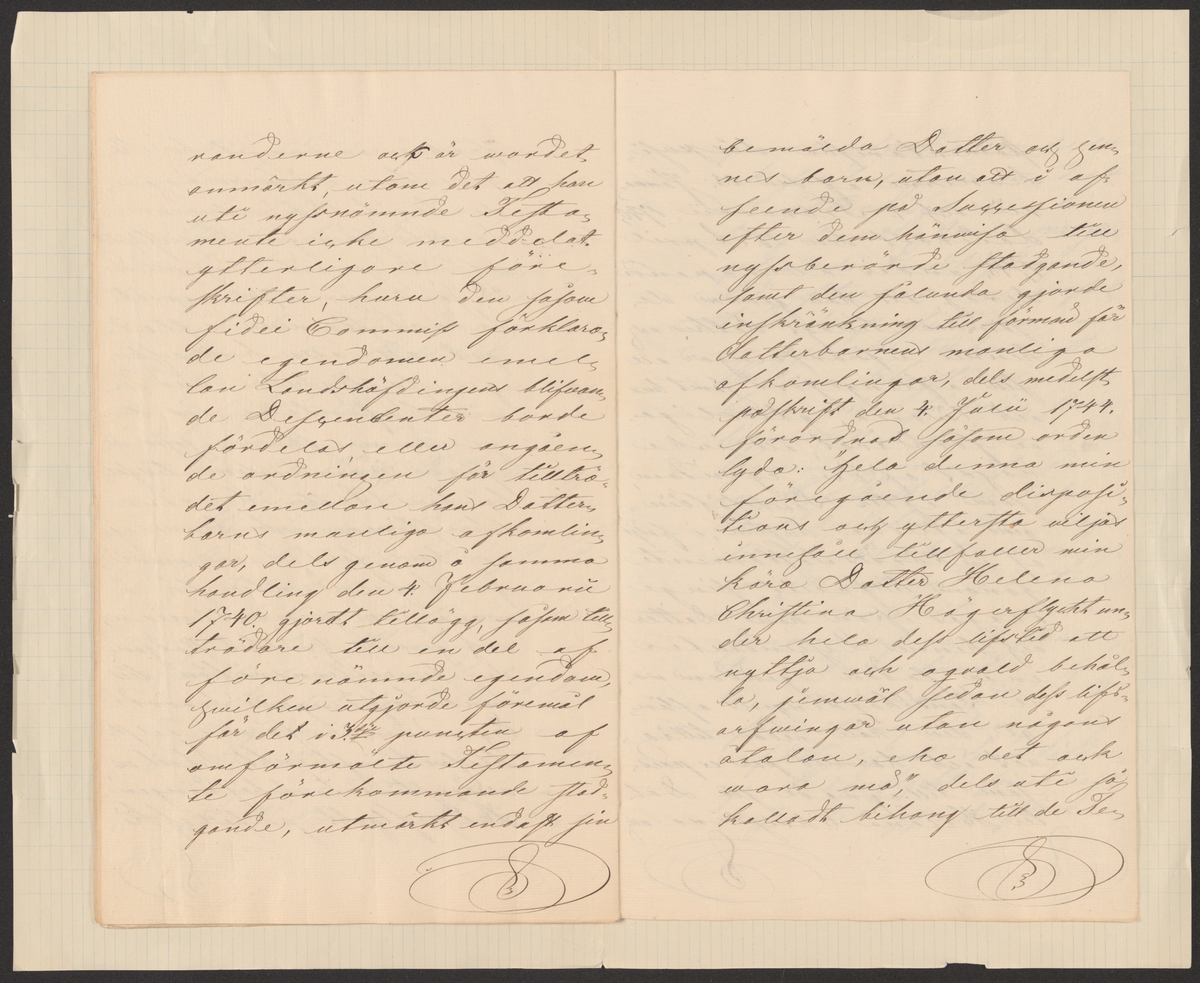 randerne ock är wordet
anmärkt, utom det att han
uti nyssnämnde Testa-
mente icke meddelat
ytterligare före-
skrifter, huru den såsom
fidei Commiss förklara-
de egendomen emel-
lan Landshöfdingens blifwan-
de Descendenter borde
fördelas, eller angåen-
de ordningen för tillträ-
det emellan hans Dotter-
barns manliga afkomlin-
gar, dels genom å samma
handling den 4. Februarii
1740. gjordt tillägg, såsom till-
trädare till en del af
förenämnde egendom,
hwilken utgjorde föremål
för det i 3:dje puncten af
omförmälte Testamen-
te förekommande stad-
gande, utmärkt endast sin
bemälda Dotter och hen-
nes barn, utan att i af-
seende på Successionen
efter dem hänwisa till
nyssberörde stadgande,
samt den sålunda gjorde
inskränkning till förmån för
dotterbarnens manliga
afkomlingar, dels medelst
påskrift den 4. Julii 1744.
förordnat såsom orden
lyda: "Hela denna min
föregående disposi-
tions och yttersta viljas
innehåll tillfaller min
kära Dotter Helena
Christina Högerflycht un-
der hela dess lifstid att
nyttja och oqvald behål-
la, jemwäl sedan dess lifs-
arfwingar utan någons
åtalan, eho det ock
wara må", dels uti så
kalladt bihang till de Te-